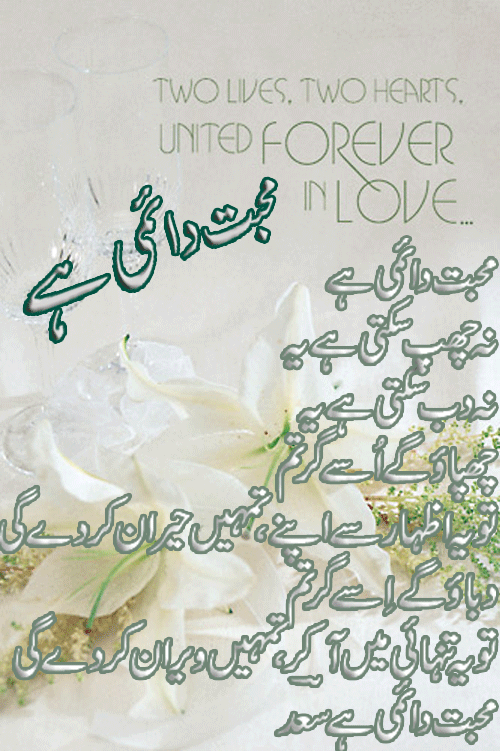 TWO LIVES, TWO HEARTS,
UNITED FOREVER
IN LOVE...
محبت دائمی ہے
محبت دائمی ہے
نہ چھپ سکتی ہے یہ
نہ دب سکتی ہے یہ
چھپاؤ گے اُسے گر تم
تو یہ اظہار سے اپنے، تمہیں حیران کر دے گی
دباؤ گے اِسے گر تم
تو یہ تنہائی میں آ کر، تمہیں ویران کر دے گی
محبت دائمی ہے سعد